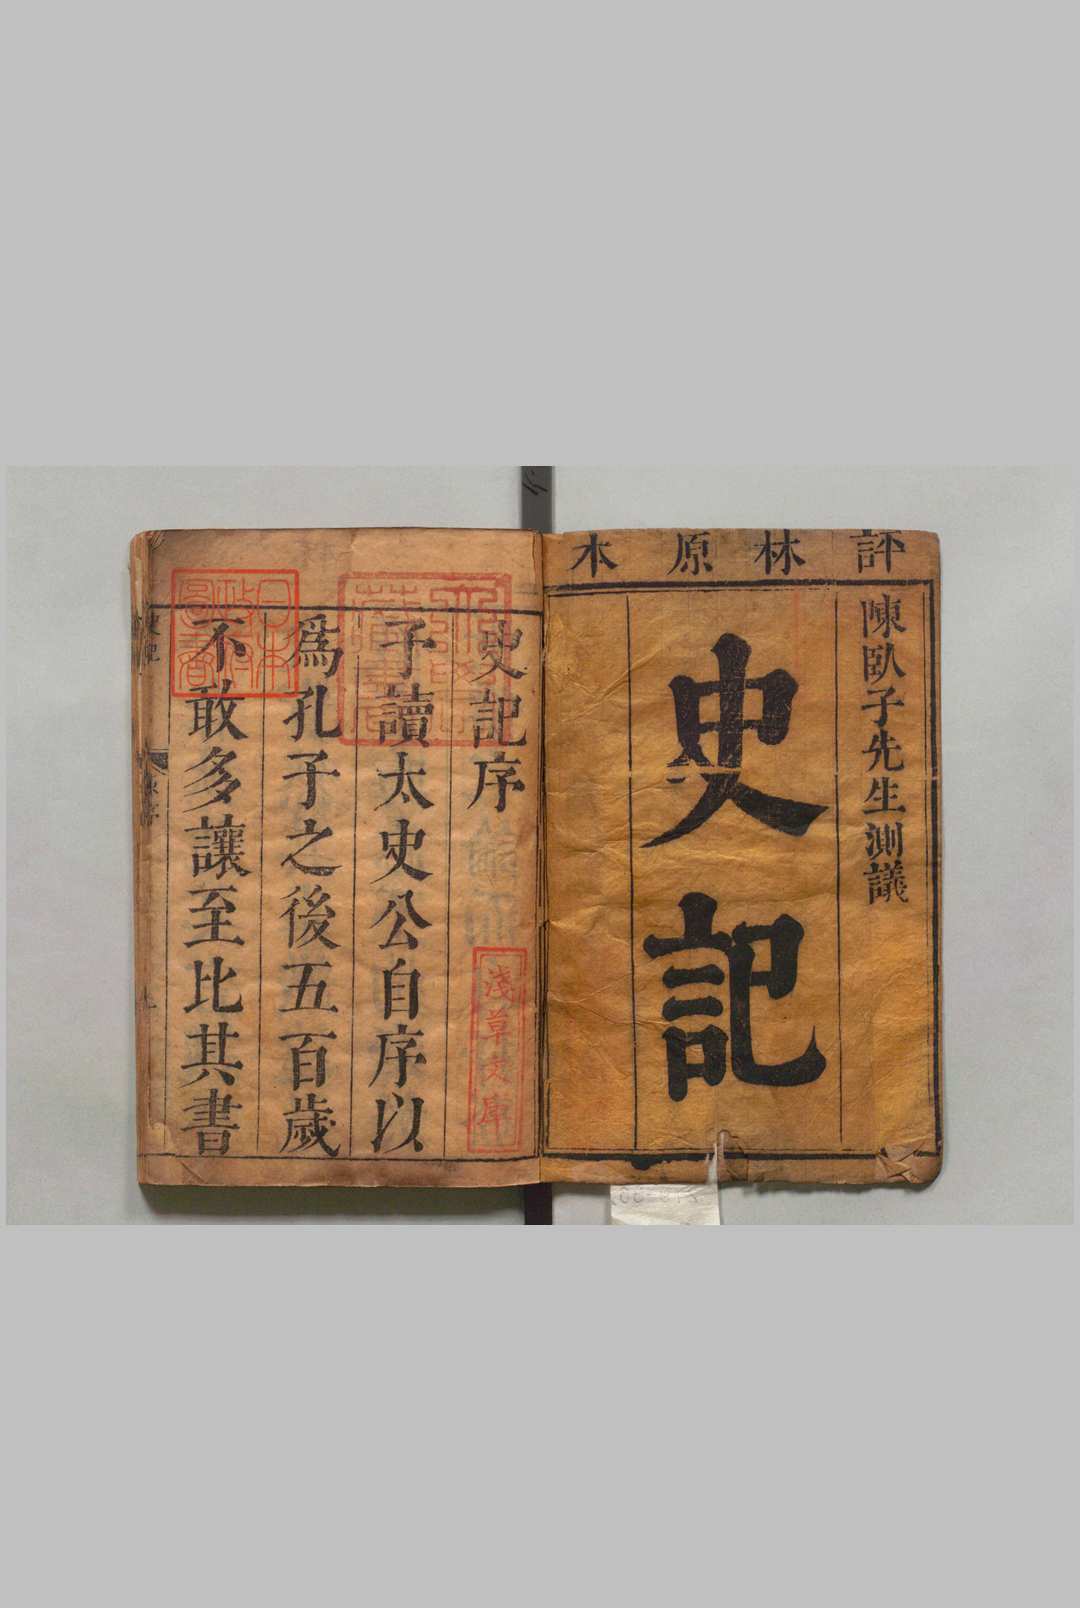 評林原本
陳臥子先生測議
史記
史記序
子讀太史公自序以
爲孔子之後五百歲
不敢多讓至比其書
淺草文庫
日本政府圖書